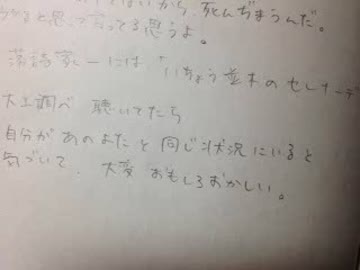 から、死んぢまうんだ。
と思って言ってる思うよ。
落語家一には「いちょう並木のセレナーデ
大上調べ 聴いてたら
自分があのまたと同じ状況にいると
気づいて、大変おもしろおかしい。